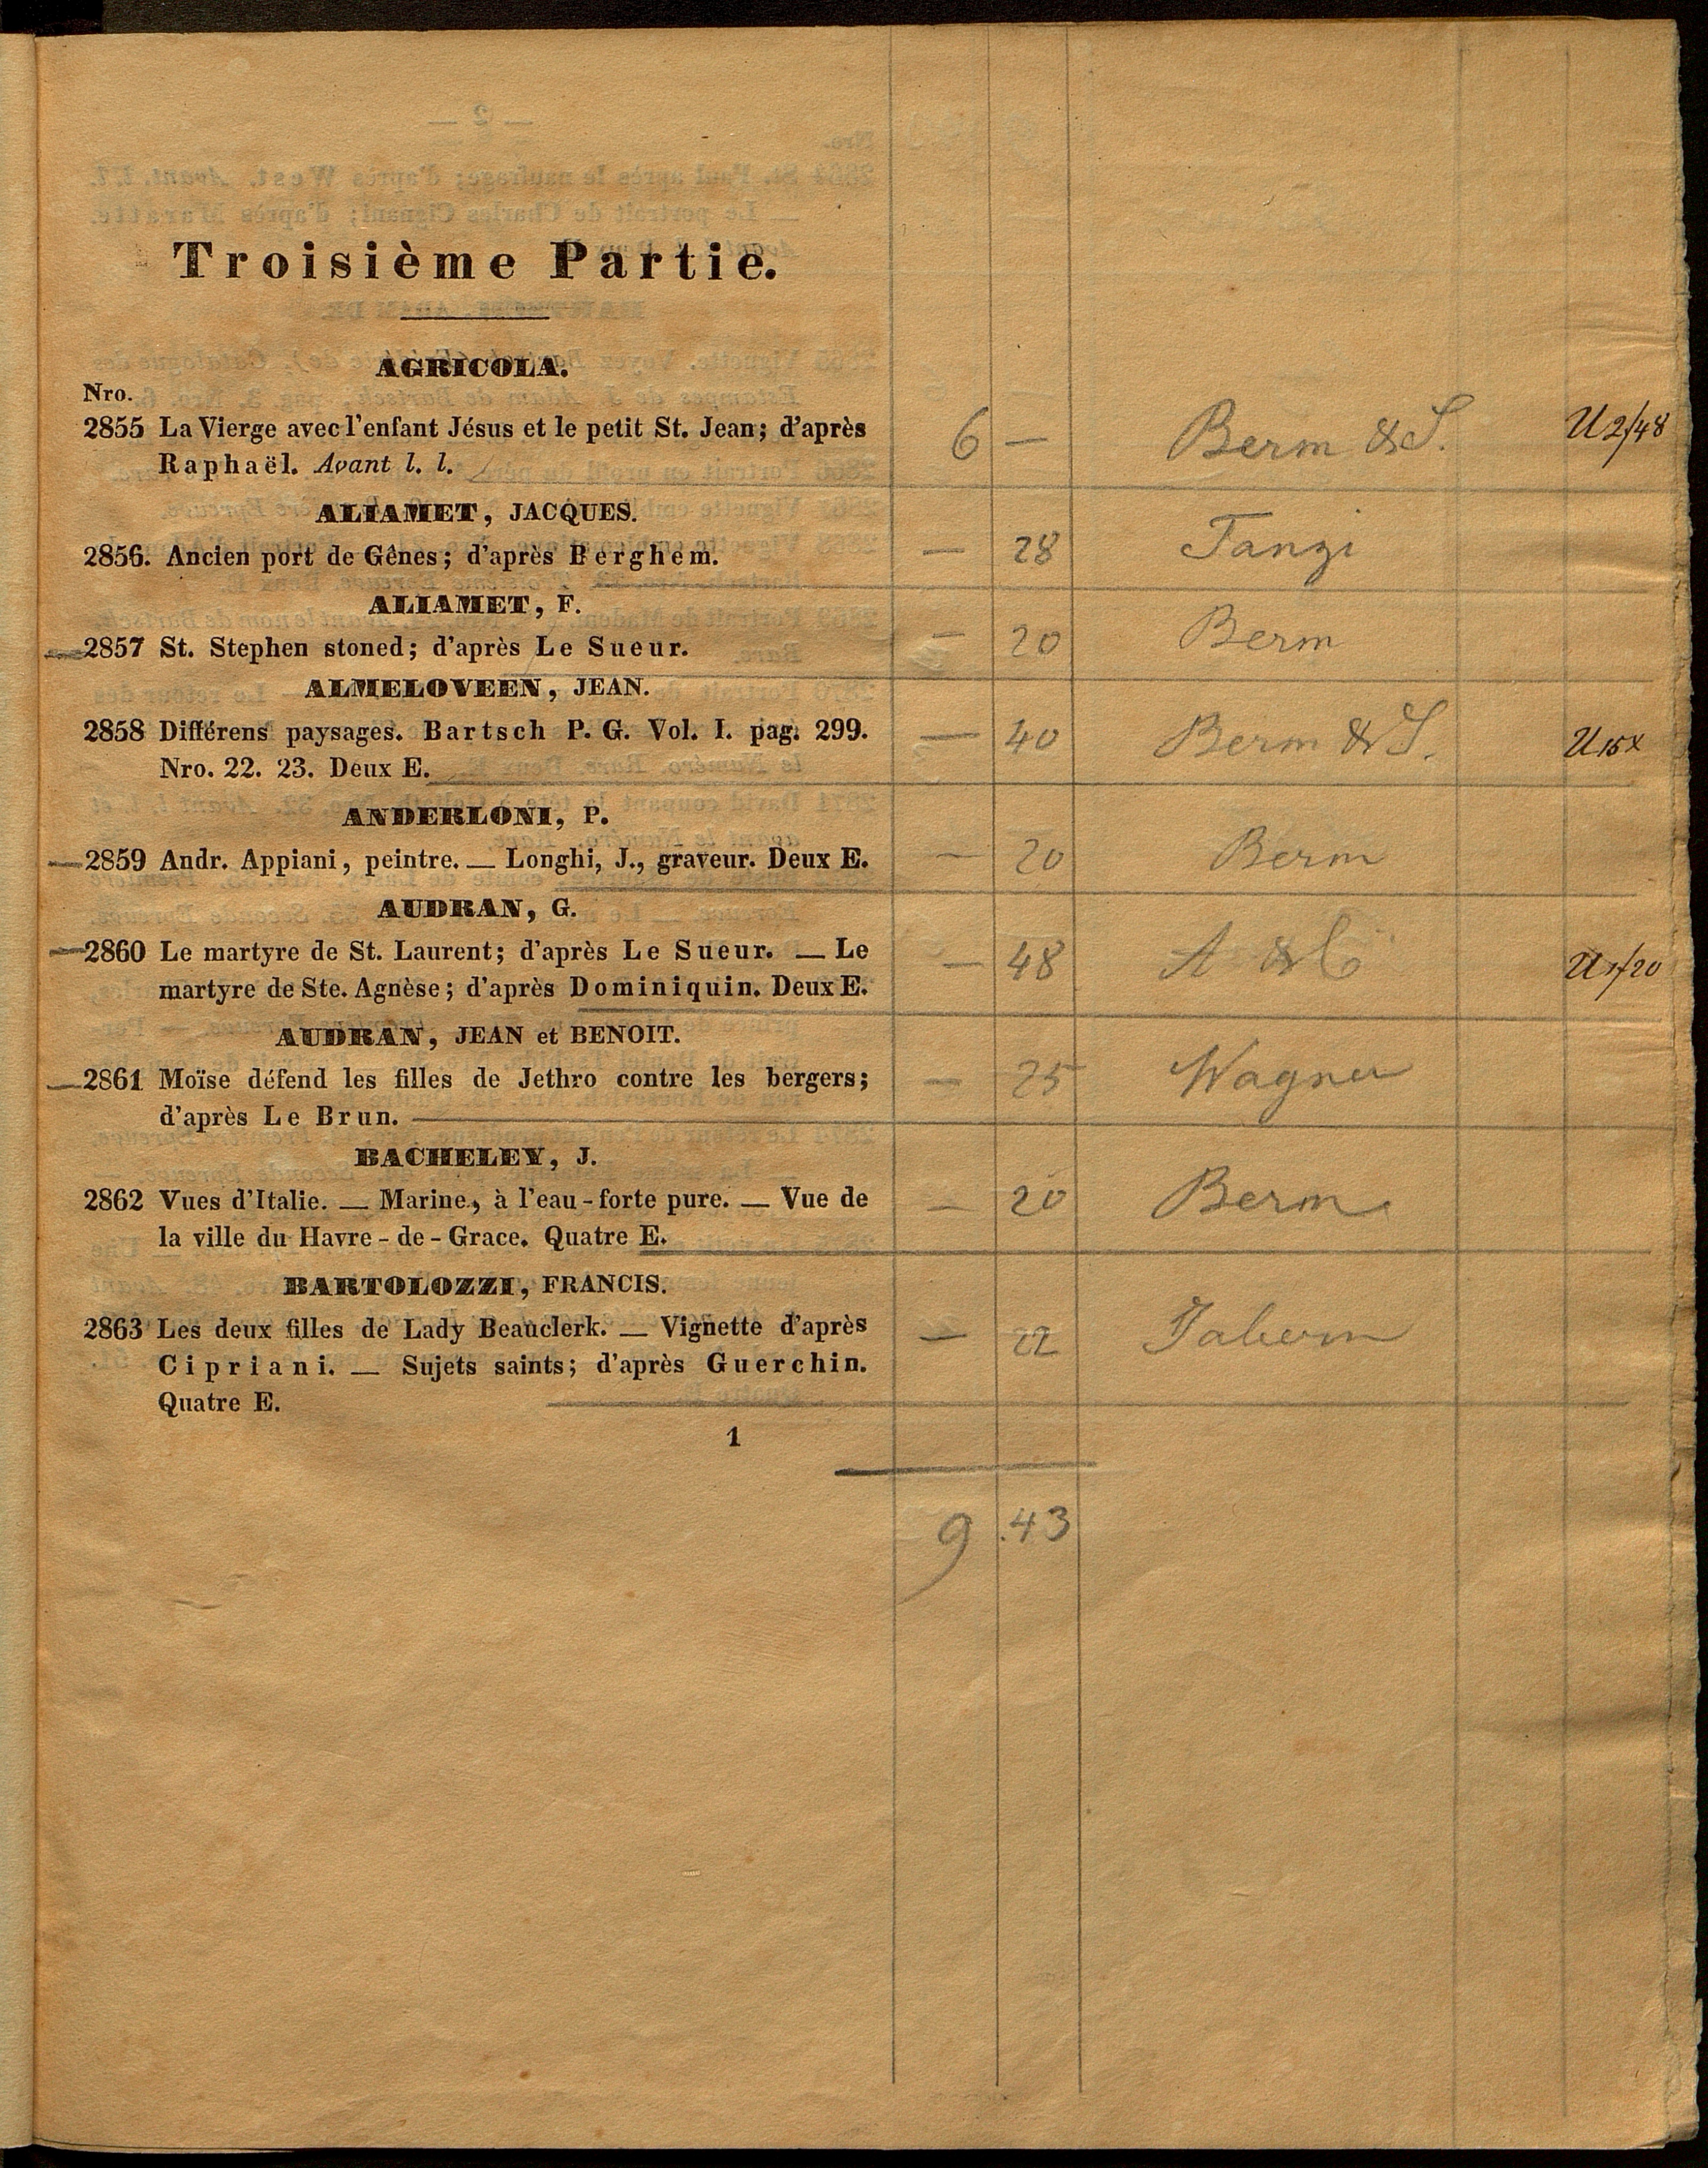 Troisième Partie.
AGRICOLA.
Nro.
2855 La Vierge avec l'enfant Jésus et le petit St. Jean; d'après 6 — Berm & S. U 2/48
Raphaël. Avant l. l.
ALIAMET, JACQUES.
2856. Ancien port de Gênes; d'après Berghem. — 28 Tanzi
ALIAMET, F.
—2857 St. Stephen stoned; d'après Le Sueur. — 20 Berm
ALMELOVEEN, JEAN.
2858 Différens paysages. Bartsch P. G. Vol. I. pag. 299. — 40 Berm & S. U 15x
Nro. 22. 23. Deux E.
ANDERLONI, P.
—2859 Andr. Appiani, peintre. — Longhi, J., graveur. Deux E. — 20 Berm
AUDRAN, G.
—2860 Le martyre de St. Laurent; d'après Le Sueur. — Le — 48 A & C U 1/20
martyre de Ste. Agnèse; d'après Dominiquin. Deux E.
AUDRAN, JEAN et BENOIT.
—2861 Moïse défend les filles de Jethro contre les bergers; — 25 Wagner
d'après Le Brun.
BACHELEY, J.
2862 Vues d'Italie. — Marine, à l'eau-forte pure. — Vue de — 20 Berm
la ville du Havre-de-Grace. Quatre E.
BARTOLOZZI, FRANCIS.
2863 Les deux filles de Lady Beauclerk. — Vignette d'après — 22
Cipriani. — Sujets saints; d'après Guerchin.
Quatre E.
1
9 .43